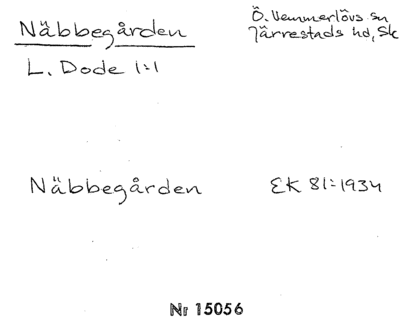 Näbbegården
Ö. Vemmerlövs sn
Järrestads hd, Sk
L. Dode 1:1
Näbbegården
EK 81:1934
Nr 15056